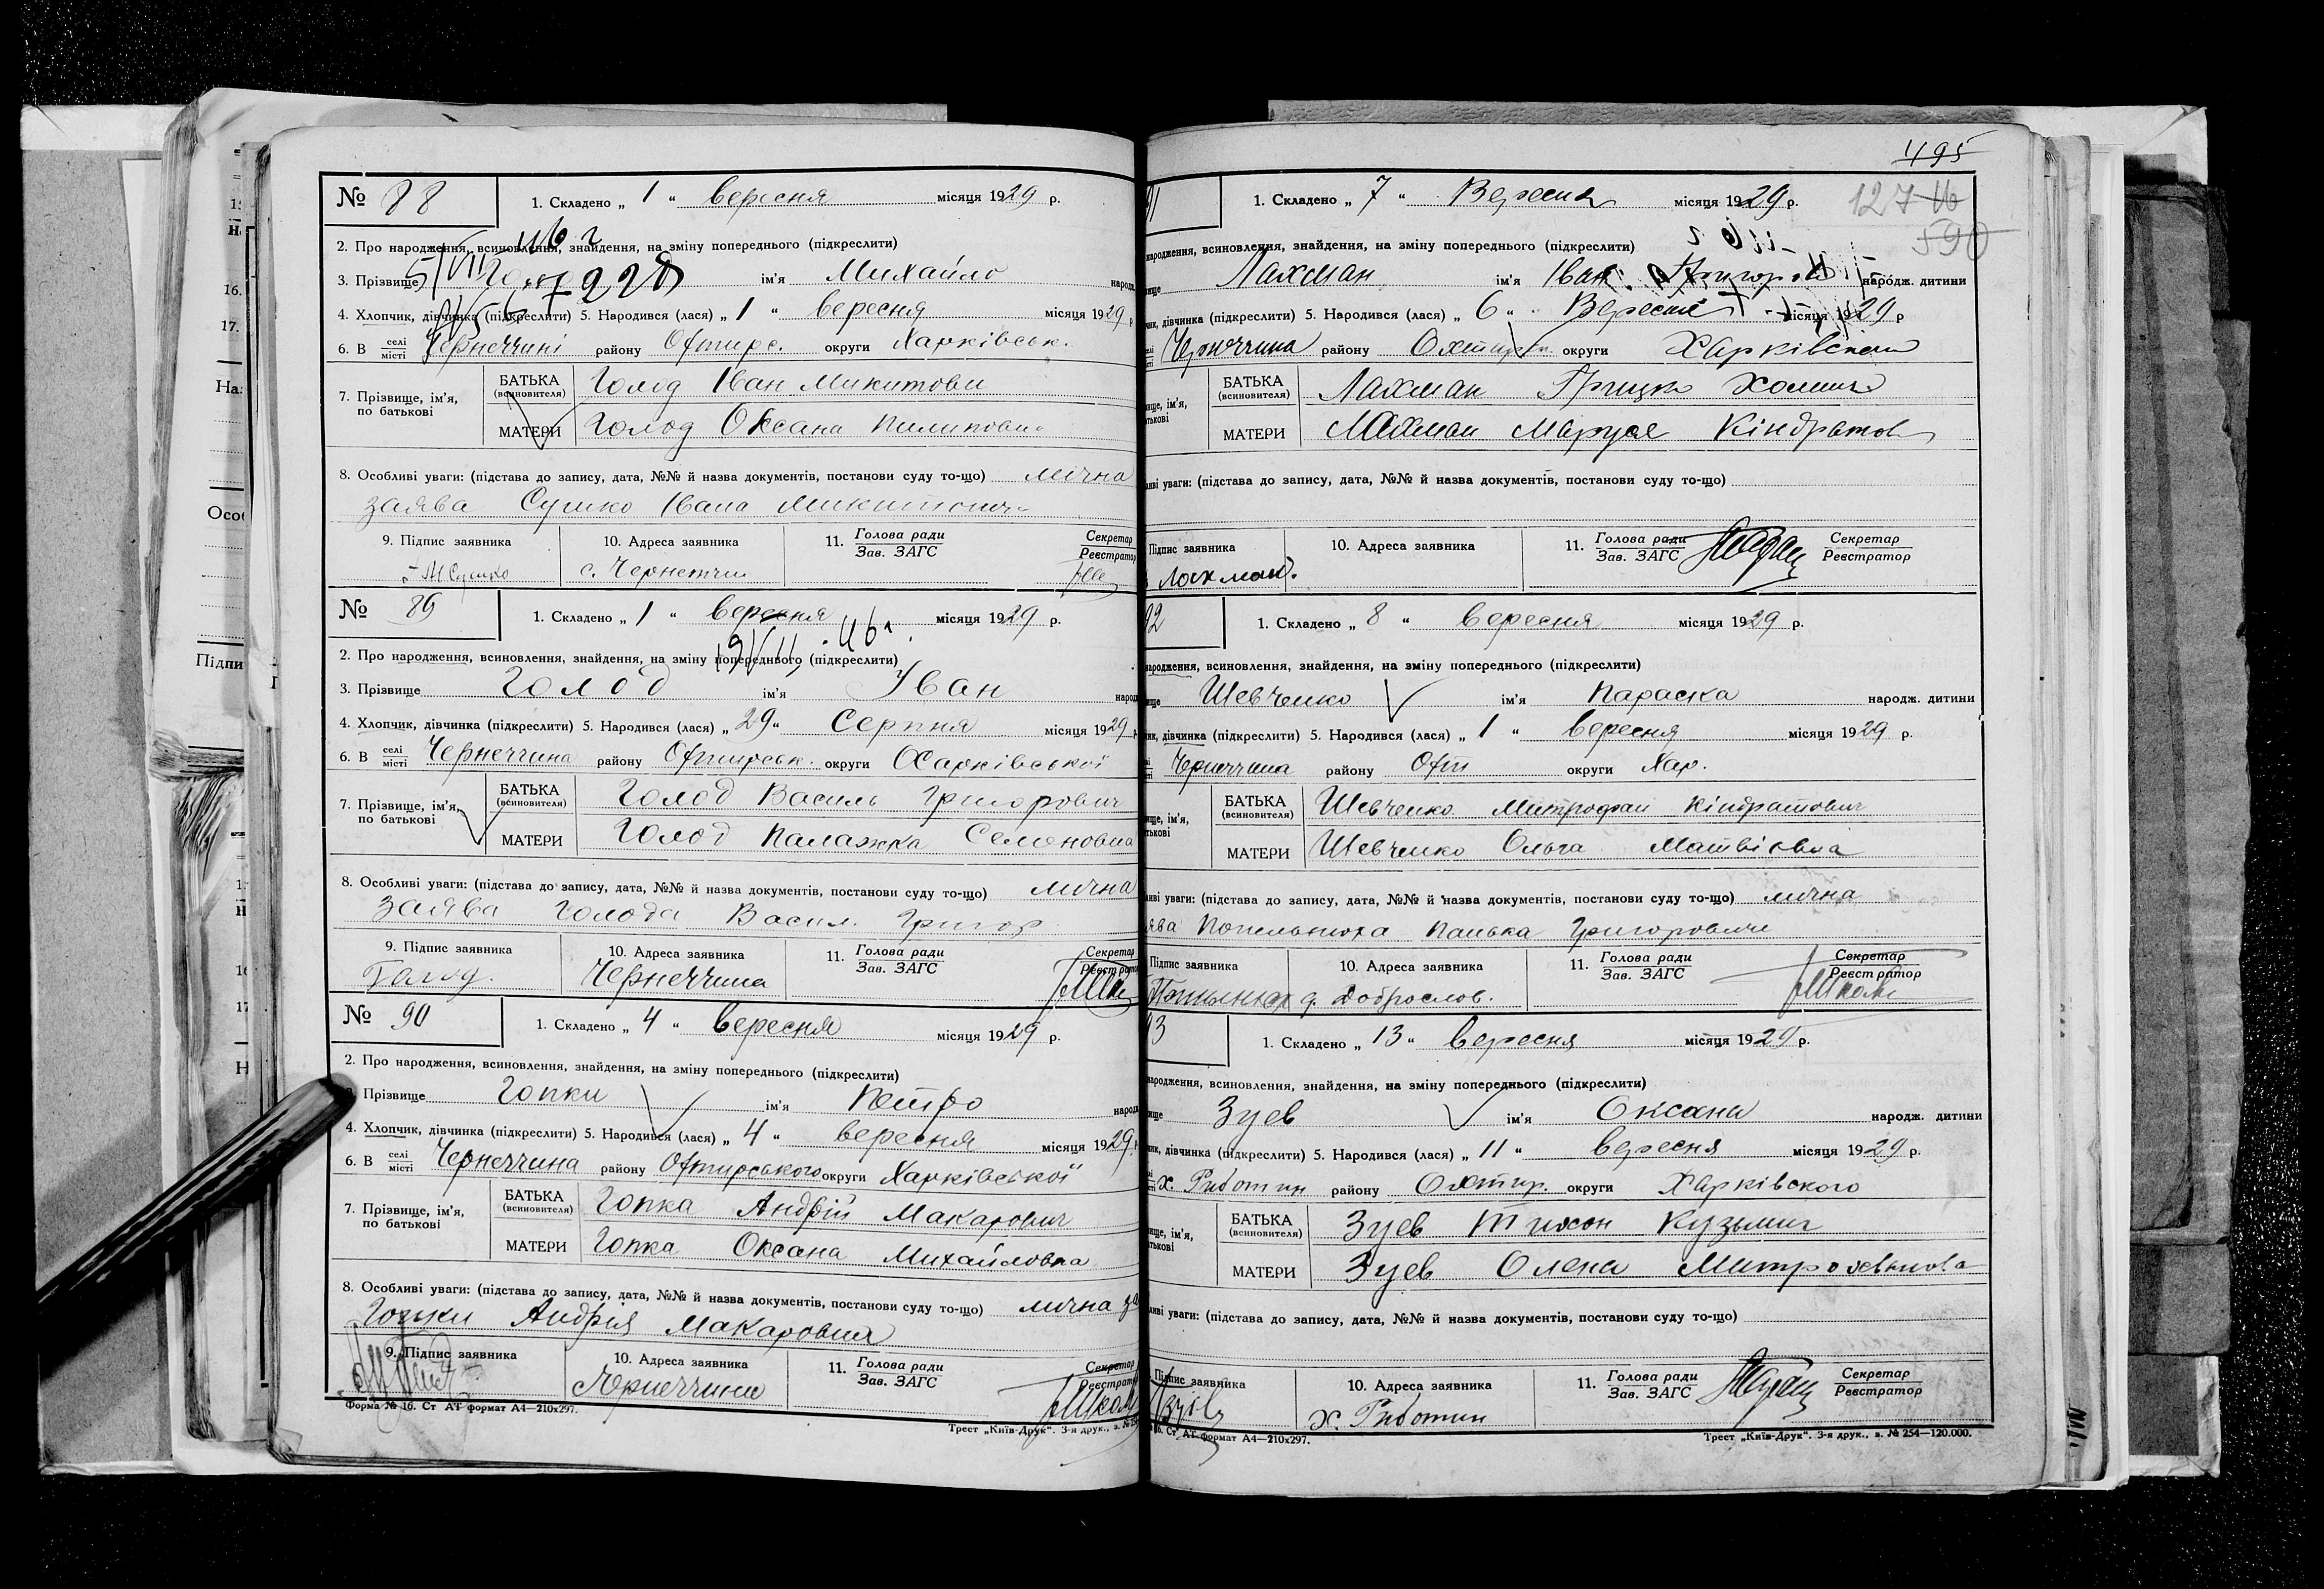 № 88
1. Складено „ 1 “ вересня місяця 1929 р.
2. Про народження, всиновлення, знайдення, на зміну попереднього (підкреслити)
3. Прізвище ім'я Михайло народ
4. Хлопчик, дівчинка (підкреслити) 5. Народився (лася) „ 1 “ вересня місяця 1929 р
6. В селі місті Чернеччині району Охтирс. округи Харківськ.
7. Прізвище, ім'я, по батькові
БАТЬКА (всиновителя) Голод Іван Микитови
МАТЕРИ Голод Оксана Пилипови
8. Особливі уваги: (підстава до запису, дата, №№ й назва документів, постанови суду то-що) лична
заява Сушко Івана Микитович
9. Підпис заявника 10. Адреса заявника 11. Голова ради Зав. ЗАГС Секретар Реєстратор
Сушко с. Чернетчин
№ 89
1. Складено „ 1 “ вересня місяця 1929 р.
2. Про народження, всиновлення, знайдення, на зміну попереднього (підкреслити)
3. Прізвище Голод ім'я Іван народ
4. Хлопчик, дівчинка (підкреслити) 5. Народився (лася) „ 29 “ Серпня місяця 1929 р
6. В селі місті Чернеччина району Охтирськ. округи Харківської
7. Прізвище, ім'я, по батькові
БАТЬКА (всиновителя) Голод Василь Григорович
МАТЕРИ Голод Палажка Семеновна
8. Особливі уваги: (підстава до запису, дата, №№ й назва документів, постанови суду то-що) лична
заява Голода Васил. Григор
9. Підпис заявника 10. Адреса заявника 11. Голова ради Зав. ЗАГС Секретар Реєстратор
Голод. Чернеччина
№ 90
1. Складено „ 4 “ вересня місяця 1929 р.
2. Про народження, всиновлення, знайдення, на зміну попереднього (підкреслити)
Прізвище Гопки ім'я Петро народ
4. Хлопчик, дівчинка (підкреслити) 5. Народився (лася) „ 4 “ вересня місяця 1929 р
6. В селі місті Чернеччина району Охтирського округи Харківської
7. Прізвище, ім'я, по батькові
БАТЬКА (всиновителя) Гопка Андрій Макарович
МАТЕРИ Гопка Оксана Михайловна
8. Особливі уваги: (підстава до запису, дата, №№ й назва документів, постанови суду то-що) лична за
Гопки Андрія Макаровия
9. Підпис заявника 10. Адреса заявника 11. Голова ради Зав. ЗАГС Секретар Реєстратор
Чернеччина
Форма № 16. Ст АТ формат А4—210х297.
Трест „Київ-Друк“. 3-я друк., з. №
495
127
590
91
1. Складено „ 7 “ Вересня місяця 1929 р.
народження, всиновлення, знайдення, на зміну попереднього (підкреслити)
Лахман ім'я Іван народж. дитини
дівчинка (підкреслити) 5. Народився (лася) „ 6 “ Вересня місяця 1929 р
Чернеччина району Охтирс. округи Харківской
БАТЬКА (всиновителя) Лахман Грицко Хомич
МАТЕРИ Лахман Маруся Кіндратов
уваги: (підстава до запису, дата, №№ й назва документів, постанови суду то-що)
Підпис заявника 10. Адреса заявника 11. Голова ради Зав. ЗАГС Секретар Реєстратор
Лахман.
92
1. Складено „ 8 “ вересня місяця 1929 р.
народження, всиновлення, знайдення, на зміну попереднього (підкреслити)
Шевченко ім'я Параска народж. дитини
дівчинка (підкреслити) 5. Народився (лася) „ 1 “ вересня місяця 1929 р.
Чернеччина району Охт округи Хар.
БАТЬКА (всиновителя) Шевченко Митрофан Кіндратович
МАТЕРИ Шевченко Ольга Матвіовна
уваги: (підстава до запису, дата, №№ й назва документів, постанови суду то-що) лична
ява Панька Григоровича
Підпис заявника 10. Адреса заявника 11. Голова ради Зав. ЗАГС Секретар Реєстратор
Доброслов.
93
1. Складено „ 13 “ вересня місяця 1929 р.
народження, всиновлення, знайдення, на зміну попереднього (підкреслити)
Зуев ім'я Оксана народж. дитини
дівчинка (підкреслити) 5. Народився (лася) „ 11 “ вересня місяця 1929 р.
х. Риботин району Охтир. округи Харківского
БАТЬКА (всиновителя) Зуев Тихон Кузьмич
МАТЕРИ Зуев Олена
уваги: (підстава до запису, дата, №№ й назва документів, постанови суду то-що)
Підпис заявника 10. Адреса заявника 11. Голова ради Зав. ЗАГС Секретар Реєстратор
х. Риботин
Ст АТ формат А4—210х297.
Трест „Київ-Друк“. 3-я друк., з. № 254—120.000.